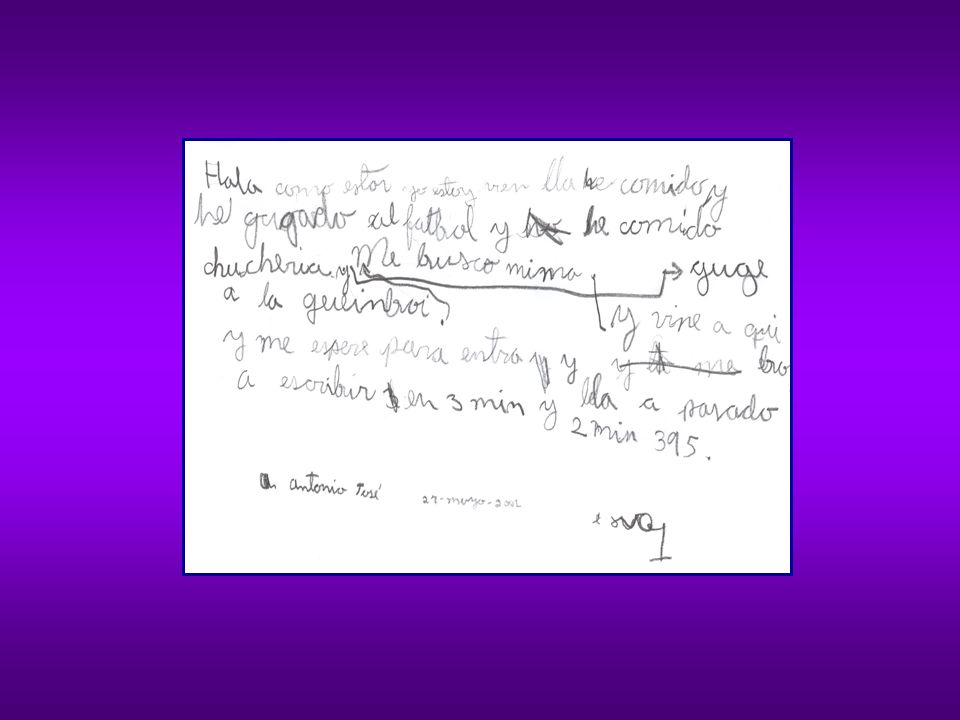 Hola como estar yo estoy vien lla he comido y
he gugado al futbol y he comido
chucheria y Me busco mima → guge
a la gueinboi. y vine a qui
y me espere para entra y y
a escribir en 3 min y lla a pasado
2 min 39s.
antonio José 27-mayo-2002